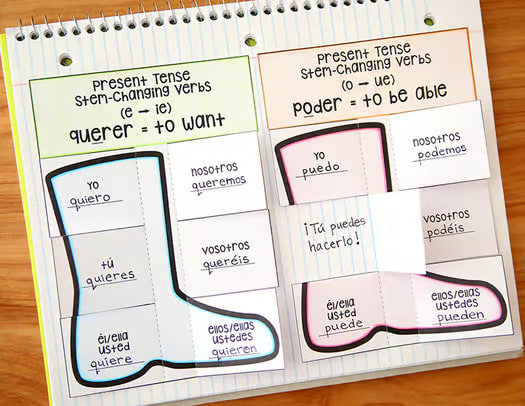 Present Tense
Stem-Changing Verbs
(e → ie)
querer = to want
yo
quiero
nosotros
queremos
tú
quieres
vosotros
queréis
él/ella
usted
quiere
ellos/ellas
ustedes
quieren
Present Tense
Stem-Changing Verbs
(o → ue)
poder = to be able
yo
puedo
nosotros
podemos
¡Tú puedes
hacerlo!
vosotros
podéis
él/ella
usted
puede
ellos/ellas
ustedes
pueden